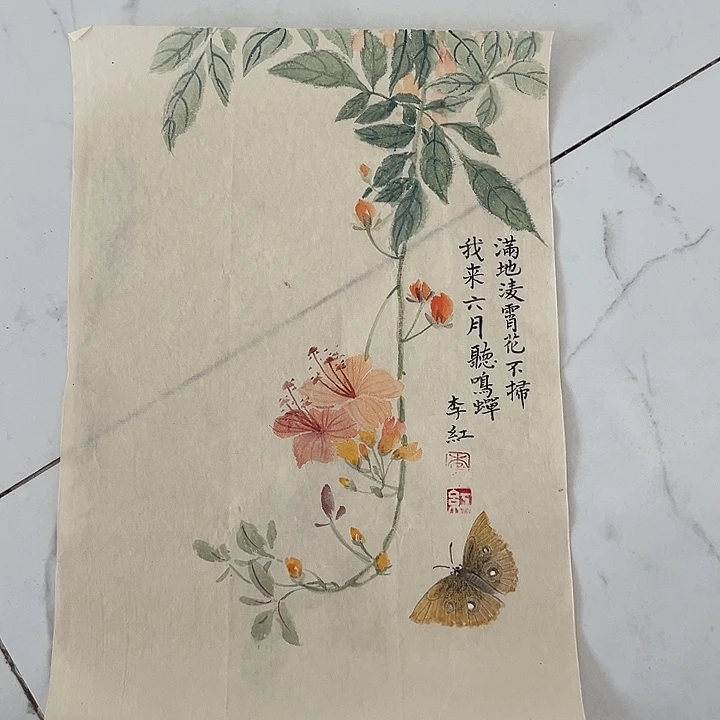 滿地淩霄花不掃
我来六月聽鳴蟬
李紅